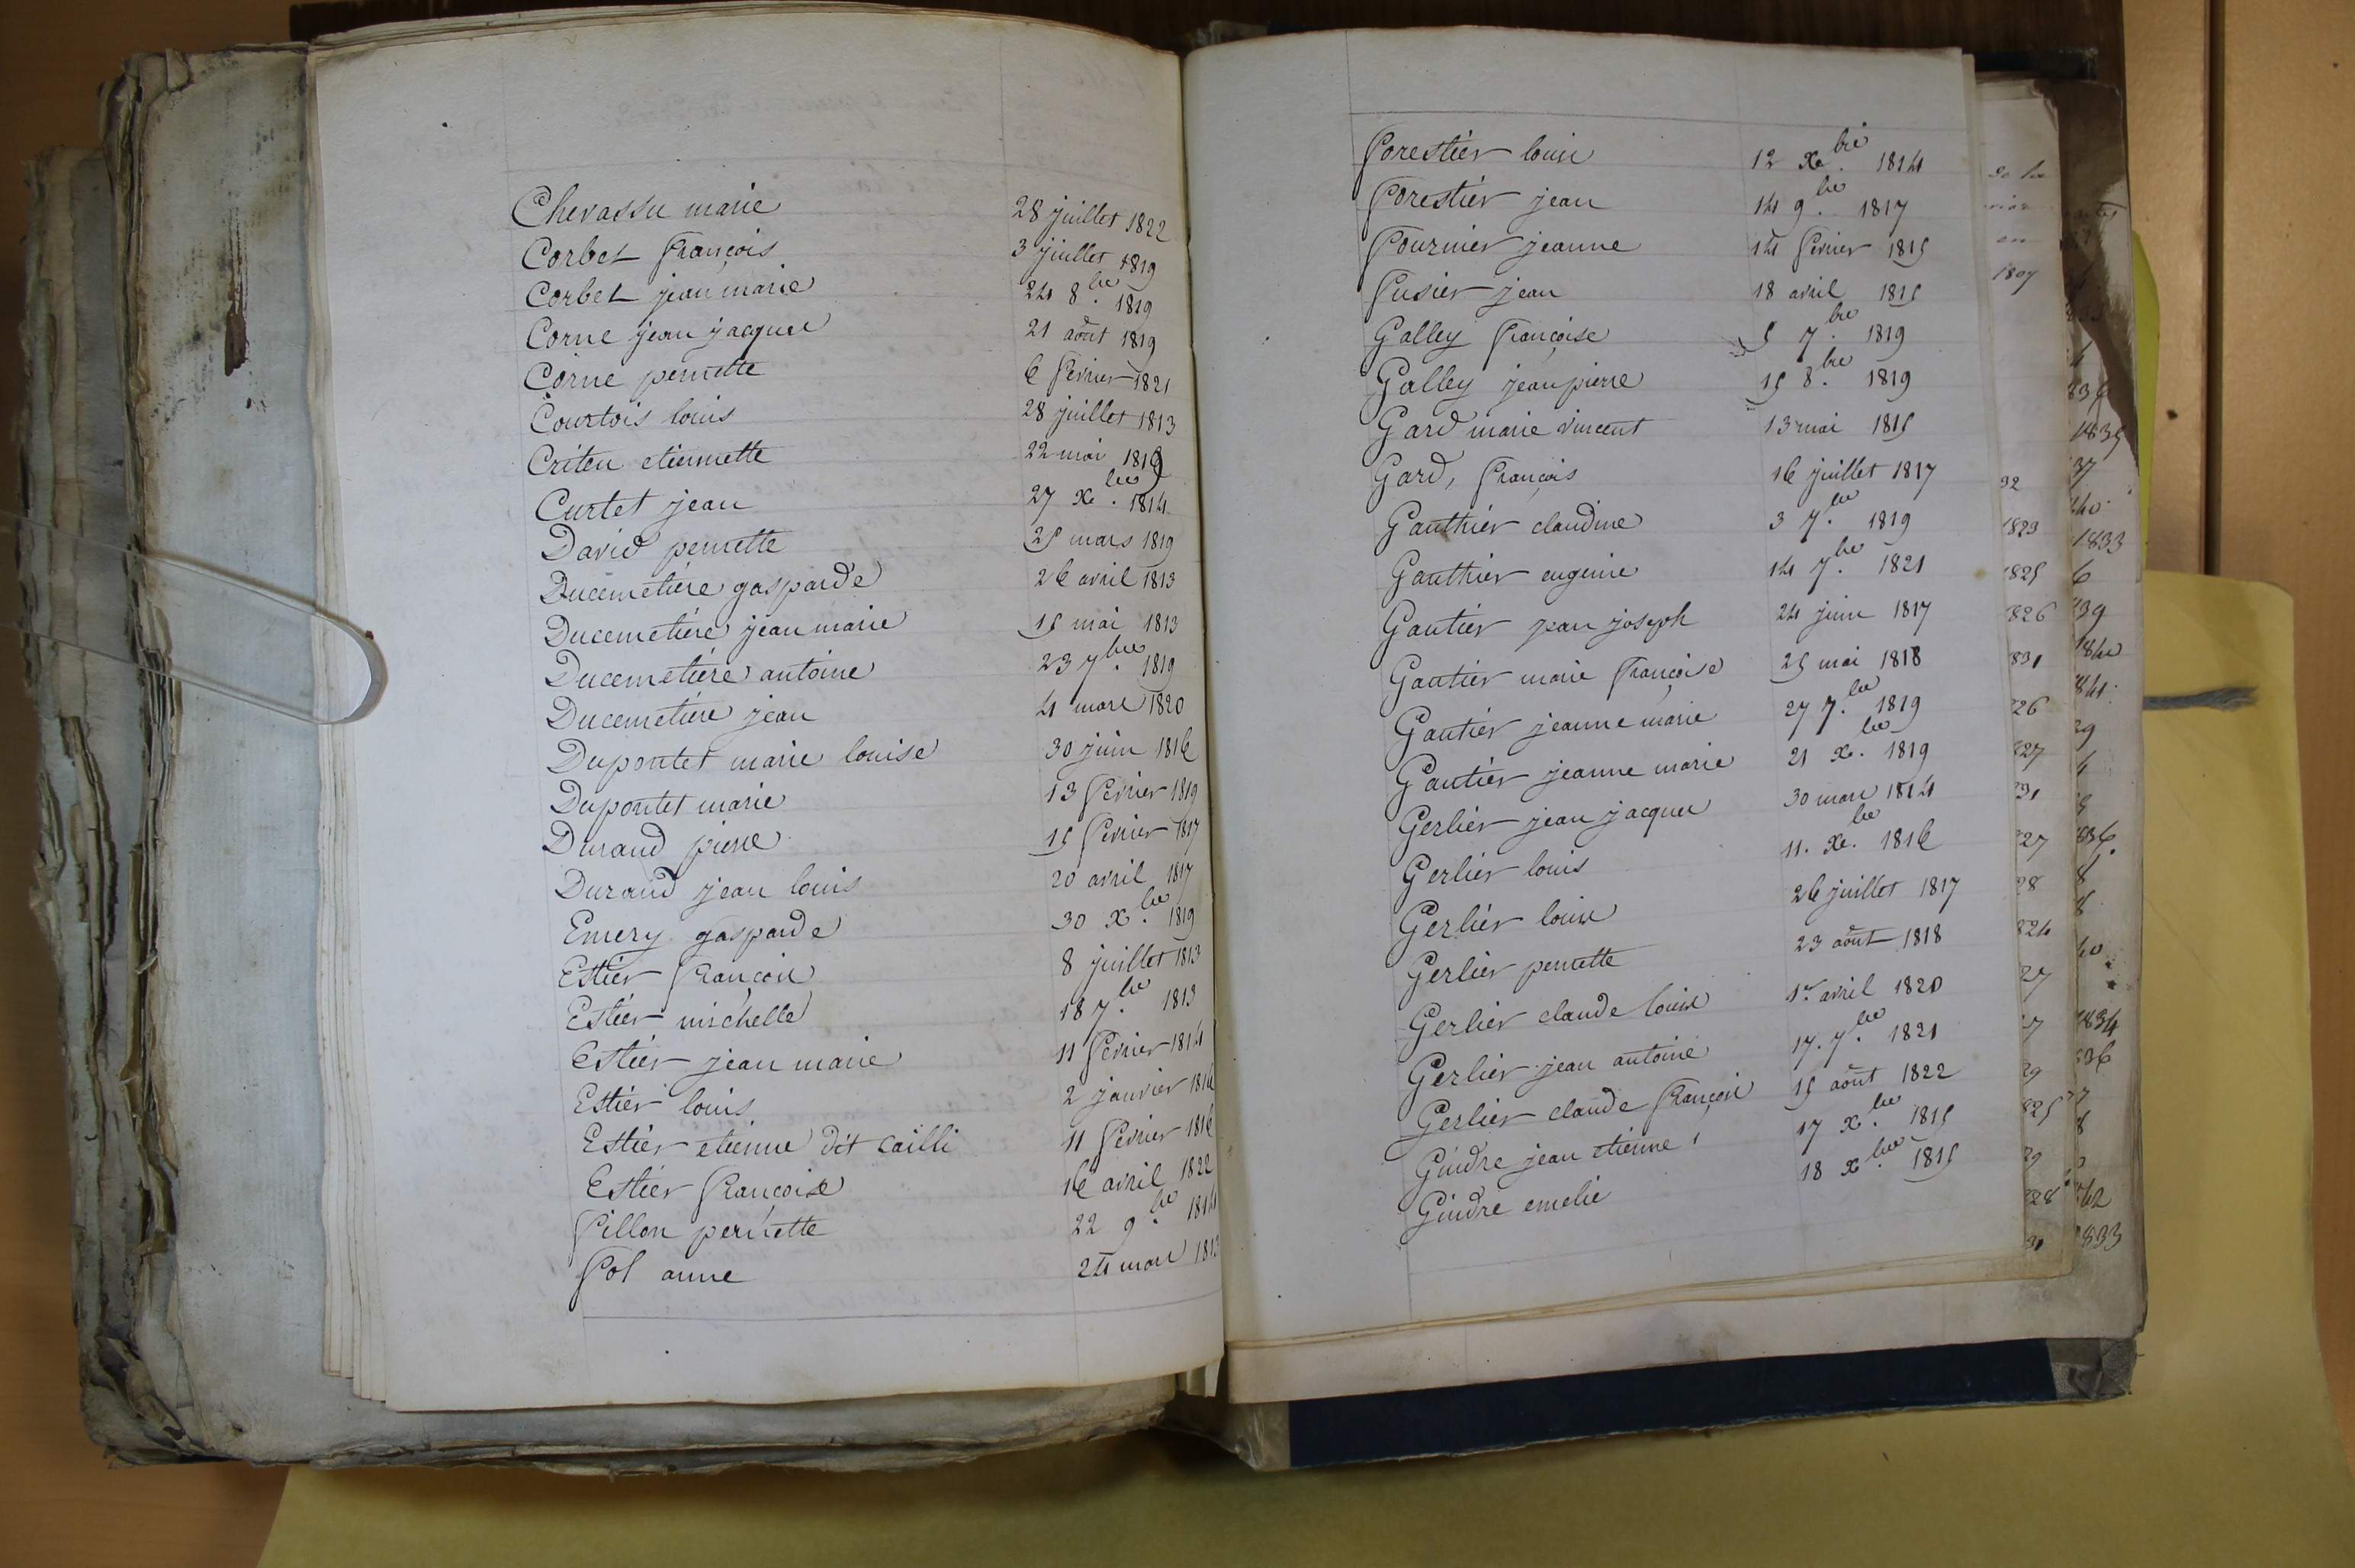 Chevassu marie 28 juillet 1822
Corbet françois 3 juillet 1819
Corbet jean marie 24 8.bre 1819
Corne jean jacques 21 août 1819
Corne pernette 6 fevrier 1821
Courtois louis 28 juillet 1813
Criteu etiennette 22 mai 1819
Curtet jean 27 Xe.bre 1814
David pernette 25 mars 1819
Ducemetière gasparde 26 avril 1813
Ducemetière jean marie 15 mai 1813
Ducemetière antoine 23 7.bre 1819
Ducemetière jean 4 mars 1820
Dupontet marie louise 30 juin 1816
Dupontet marie 13 fevrier 1819
Durand pierre 15 fevrier 1817
Durand jean louis 20 avril 1817
Emery gasparde 30 X.bre 1819
Estier françois 8 juillet 1813
Estier michelle 18 7.bre 1813
Estier jean marie 11 fevrier 1814
Estier louis 2 janvier 1816
Estier etienne dit cailli 11 fevrier 1816
Estier françoise 16 avril 1822
Fillon pernette 22 9.bre 1814
Fol anne 24 mars 1813
Forestier louise 12 Xe.bre 1814
Forestier jean 14 9.bre 1817
Fournier jeanne 14 fevrier 1815
Fusier jean 18 avril 1815
Galley françoise 5 7.bre 1819
Galley jean pierre 15 8.bre 1819
Gard marie vincent 13 mai 1815
Gard, françois 16 juillet 1817
Gauthier claudine 3 7.bre 1819
Gauthier eugenie 14 7.bre 1821
Gautier jean joseph 24 juin 1817
Gautier marie françoise 25 mai 1818
Gautier jeanne marie 27 7.bre 1819
Gautier jeanne marie 21 Xe.bre 1819
Gerlier jean jacques 30 mars 1814
Gerlier louis 11. Xe.bre 1816
Gerlier louise 26 juillet 1817
Gerlier pernette 23 août 1818
Gerlier claude louise 1er avril 1820
Gerlier jean antoine 17. 7.bre 1821
Gerlier claude françois 15 août 1822
Gindre jean etienne 17 X.bre 1815
Gindre emelie 18 X.bre 1815